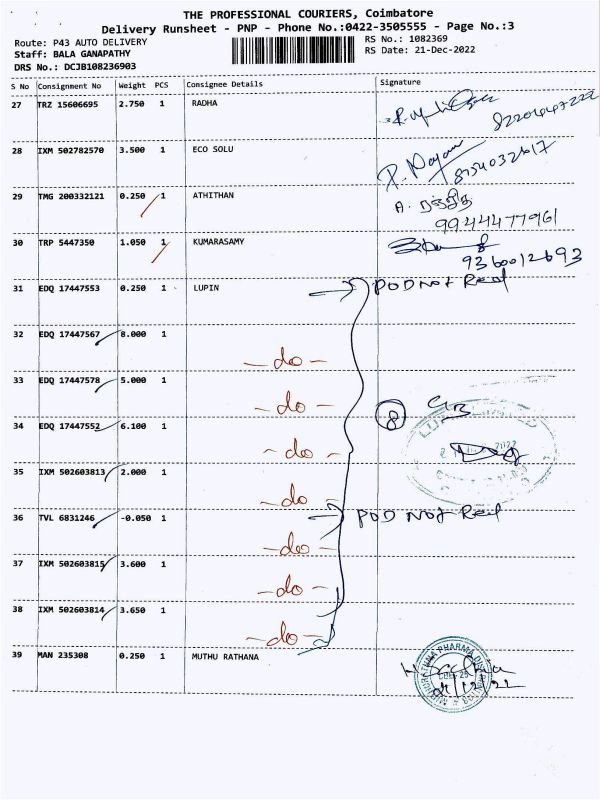 THE PROFESSIONAL COURIERS, Coimbatore
Delivery Runsheet - PNP - Phone No.:0422-3505555 - Page No.:3
Route: P43 AUTO DELIVERY
RS No.: 1082369
Staff: BALA GANAPATHY
RS Date: 21-Dec-2022
DRS No.: DCJB108236903
S No Consignment No Weight PCS Consignee Details Signature
27 TRZ 15606695 2.750 1 RADHA
28 IXM 502782570 3.500 1 ECO SOLU
8754032617
29 TMG 200332121 0.250 1 ATHITHAN A. ரஞ்சித்
9944477961
30 TRP 5447350 1.050 1 KUMARASAMY
9360012693
31 EDQ 17447553 0.250 1 LUPIN POD Not Recd
32 EDQ 17447567 8.000 1
- do -
33 EDQ 17447578 5.000 1
- do -
8
34 EDQ 17447552 6.100 1
- do -
35 IXM 502603813 2.000 1
- do -
36 TVL 6831246 -0.050 1 POD Not Recd
- do -
37 IXM 502603815 3.600 1
- do -
38 IXM 502603814 3.650 1
- do -
39 MAN 235308 0.250 1 MUTHU RATHANA